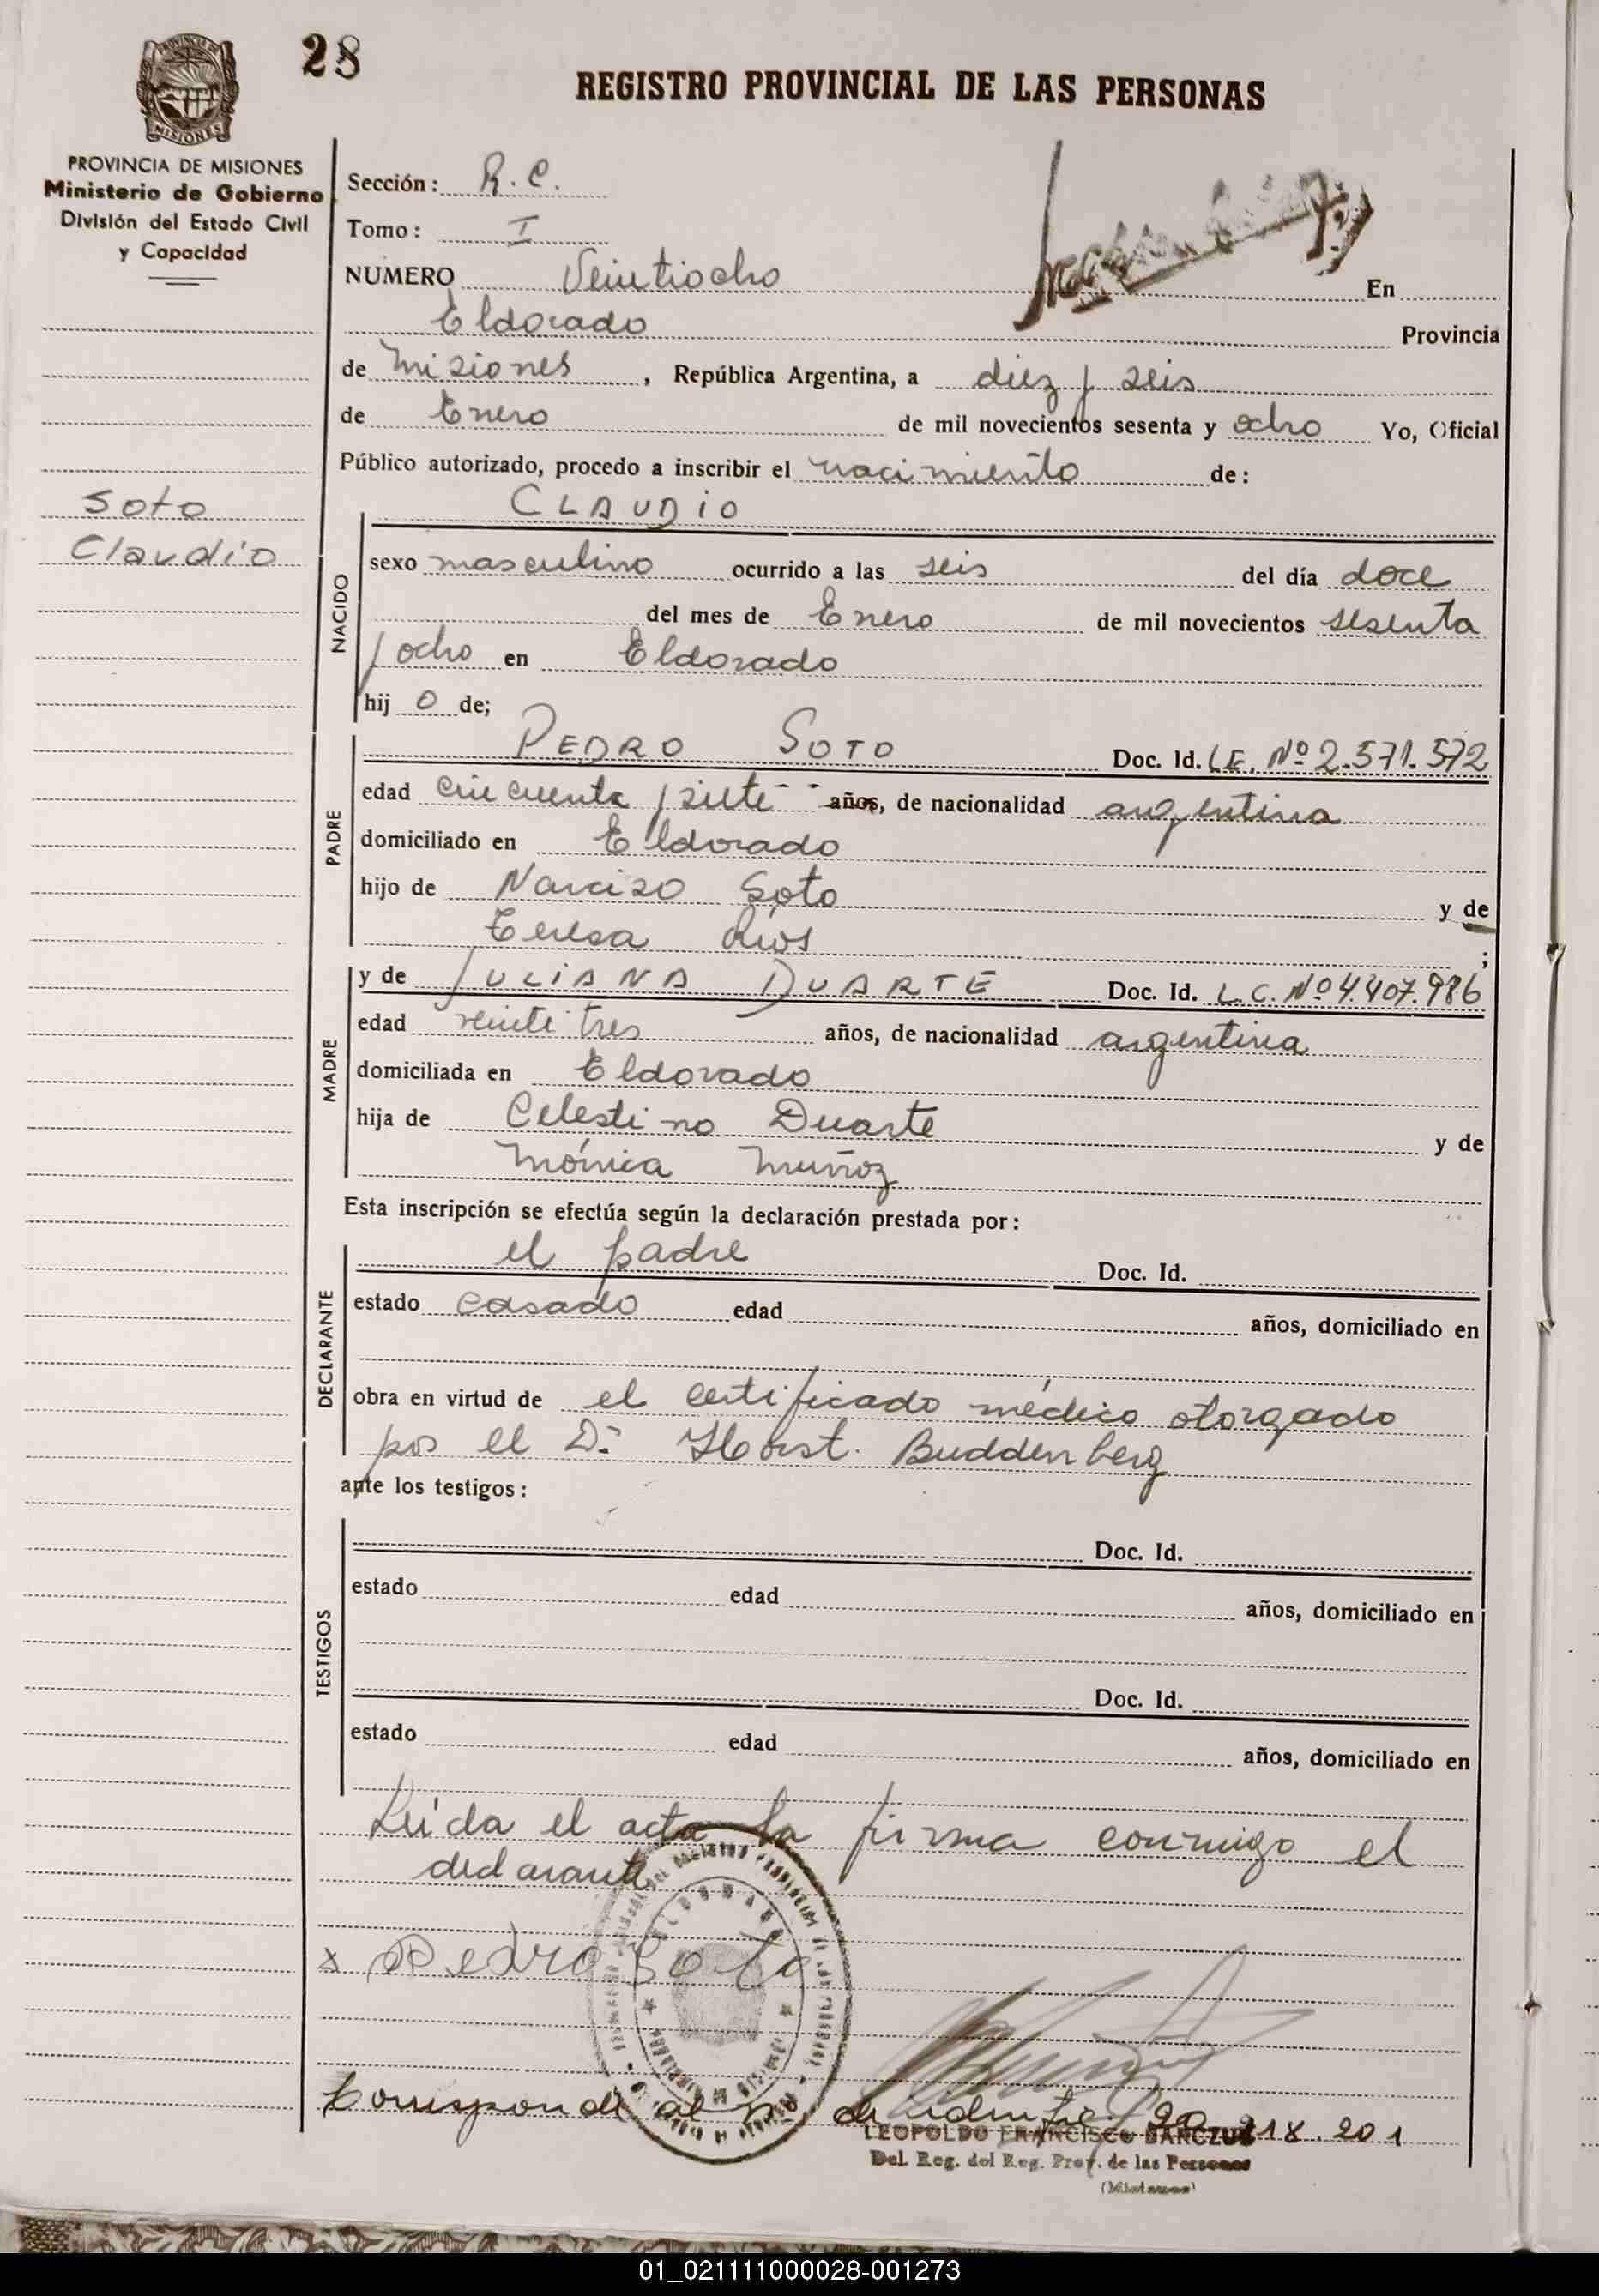 28
REGISTRO PROVINCIAL DE LAS PERSONAS
PROVINCIA DE MISIONES
Ministerio de Gobierno
División del Estado Civil
y Capacidad
Sección: R.C.
Tomo: I
NUMERO Veintiocho En
Eldorado Provincia
de Misiones, República Argentina, a diez y seis
de Enero de mil novecientos sesenta y ocho Yo, Oficial
Público autorizado, procedo a inscribir el nacimiento de:
Soto
Claudio
CLAUDIO
NACIDO
sexo masculino ocurrido a las seis del día doce
del mes de Enero de mil novecientos sesenta
y ocho en Eldorado
hij o de;
PADRE
PEDRO SOTO Doc. Id. L.E. Nº 2.571.572
edad cincuenta y siete años, de nacionalidad argentina
domiciliado en Eldorado
hijo de Narciso Soto y de
Teresa Ríos ;
MADRE
y de JULIANA DUARTE Doc. Id. L.C. Nº 4.407.986
edad veinte tres años, de nacionalidad argentina
domiciliada en Eldorado
hija de Celestino Duarte y de
Mónica Muñoz
Esta inscripción se efectúa según la declaración prestada por:
DECLARANTE
el padre Doc. Id.
estado casado edad años, domiciliado en
obra en virtud de el certificado médico otorgado
por el Dr. Horst. Buddenberg
ante los testigos:
TESTIGOS
Doc. Id.
estado edad años, domiciliado en
Doc. Id.
estado edad años, domiciliado en
Leída el acta la firma conmigo el
declarante
x Pedro Soto
ELDORADO
Corresponde al Nº de identific. 20.218.201
LEOPOLDO FRANCISCO
Del. Reg. del Reg. Prov. de las Personas
(Misiones)
01_021111000028-001273